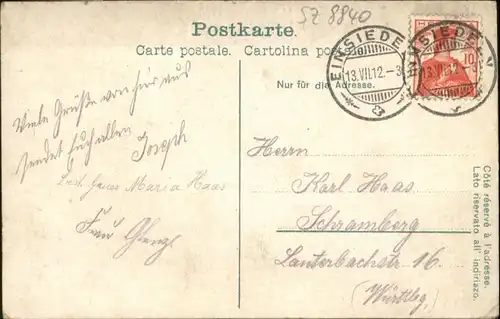 SZ 8840
Postkarte.
Carte postale. Cartolina postale.
Nur für die Adresse.
EINSIEDELN
13.VII.12.-3
10
Viele Grüße von hier aus
sendet Euch allen
Joseph
Maria Haas
Frau
Herrn
Karl Haas
Schramberg
Lauterbachstr 16.
(Württbg.)
Côté réservé à l'adresse.
Lato riservato all' indirizzo.